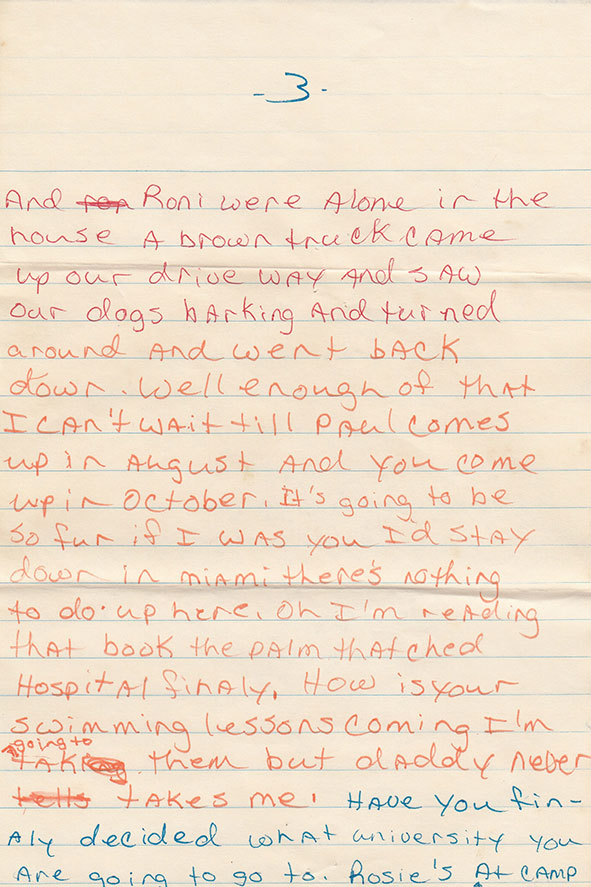 -3-
And Roni were Alone in the
house A brown truck came
up our drive way And saw
our dogs barking And turned
around And went back
down. Well enough of that
I can't wait till Paul comes
up in August And you come
up in October. It's going to be
so fun if I was you I'd stay
down in miami there's nothing
to do up here. Oh I'm reading
that book the palm thatched
Hospital finaly. How is your
swimming lessons coming I'm
going to
tak them but daddy never
tells takes me. Have you fin-
aly decided what university you
Are going to go to. Rosie's At camp